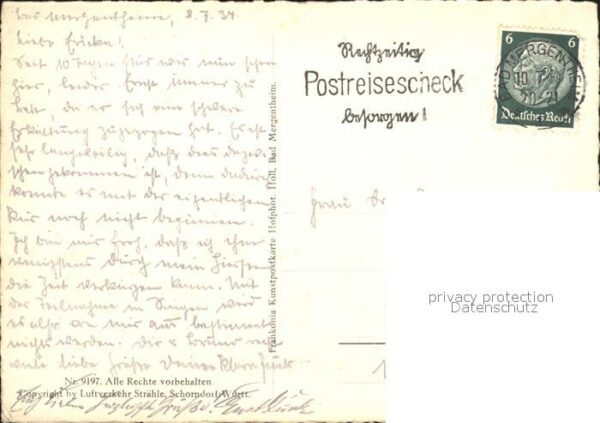 Bad Mergentheim, 8.7.34
Liebe Ericken!
Seit 10 Tagen sind wir nun schon
hier, leider Ernst immer zu
Bett, da er sich eine schwere
Erkältung zugezogen hat. Es ist
sehr langweilig, daß dies dazwi-
schen gekommen ist, denn dadurch
konnte er mit der eigentlichen
Kur noch nicht beginnen.
Ich bin nur froh, daß ich ihm
wenigstens durch mein Hiersein
die Zeit verkürzen kann. Mit
der Teilnahme in Singen wird
es also von uns aus bestimmt
nichts werden. Dir u. Bruno recht
viele liebe Grüße Deine Klara
Nr. 9197. Alle Rechte vorbehalten.
Copyright by Luftverkehr Strähle, Schorndorf-Württ.
herzliche Grüße! Ernst
Frankonia Kunstpostkarte Hofphot. Holl, Bad Mergentheim.
Rechtzeitig
Postreisescheck
besorgen!
BAD MERGENTHEIM
10.7.
20-21
6 6
Deutsches Reich
Frau
privacy protection
Datenschutz